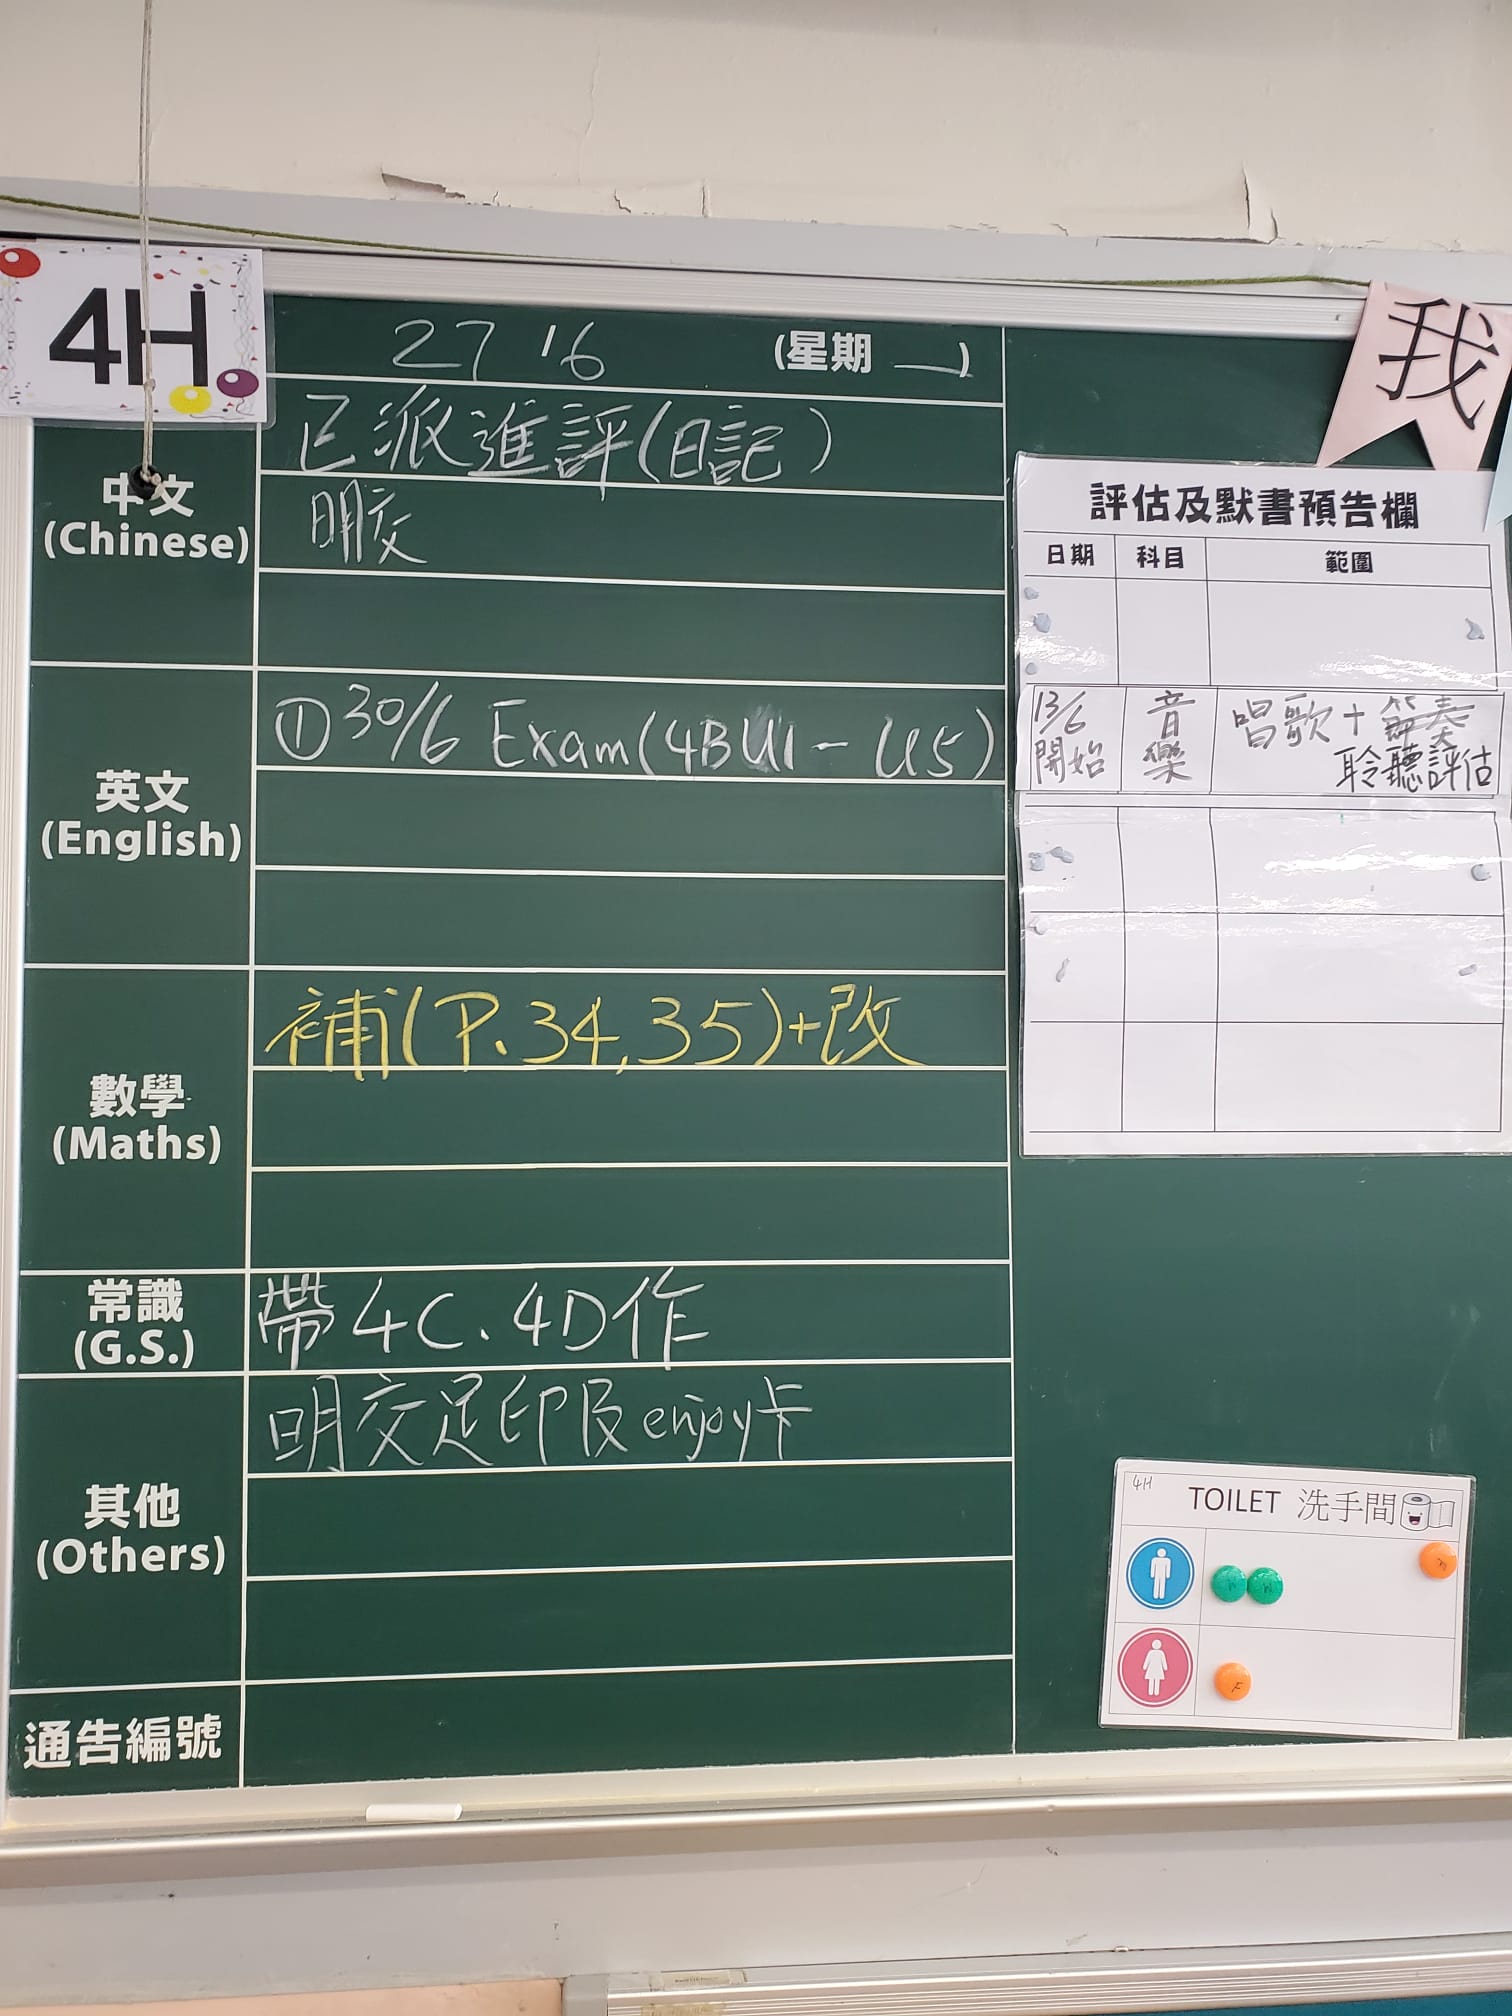 4H
27 / 6 (星期 一)
中文
(Chinese)
已派進評(日記)
明交
英文
(English)
① 30/6 Exam(4B U1 - U5)
數學
(Maths)
補(P.34,35)+改
常識
(G.S.)
帶4C.4D作
其他
(Others)
明交足印及enjoy卡
通告編號
我
評估及默書預告欄
日期 科目 範圍
13/6 開始 音樂 唱歌+節奏
聆聽評估
4H
TOILET 洗手間
M M M
F